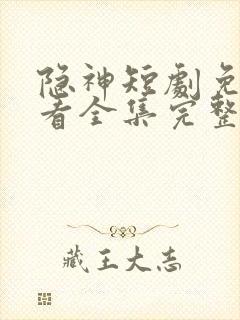 隐神短劇免
看全集完整
藏王大志